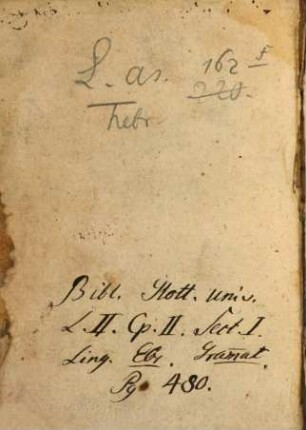 L. as. 162 f
228.
hebr.
Bibl. Hott. univ.
L. II. Cp. II. Sect. I.
Ling. Ebr. Gramat.
Pg. 480.